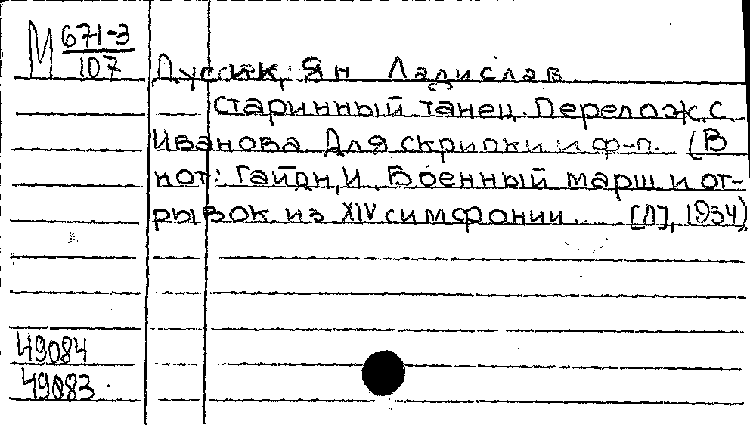 М 671-3
107
Дуссик, Ян Ладислав
Старинный танец. Перелож. С.
Иванова. Для скрипки и ф-п. (В
нот: Гайдн, И. Военный марш и от-
рывок из XIV симфонии. [Л], 1934)
49084
49083.